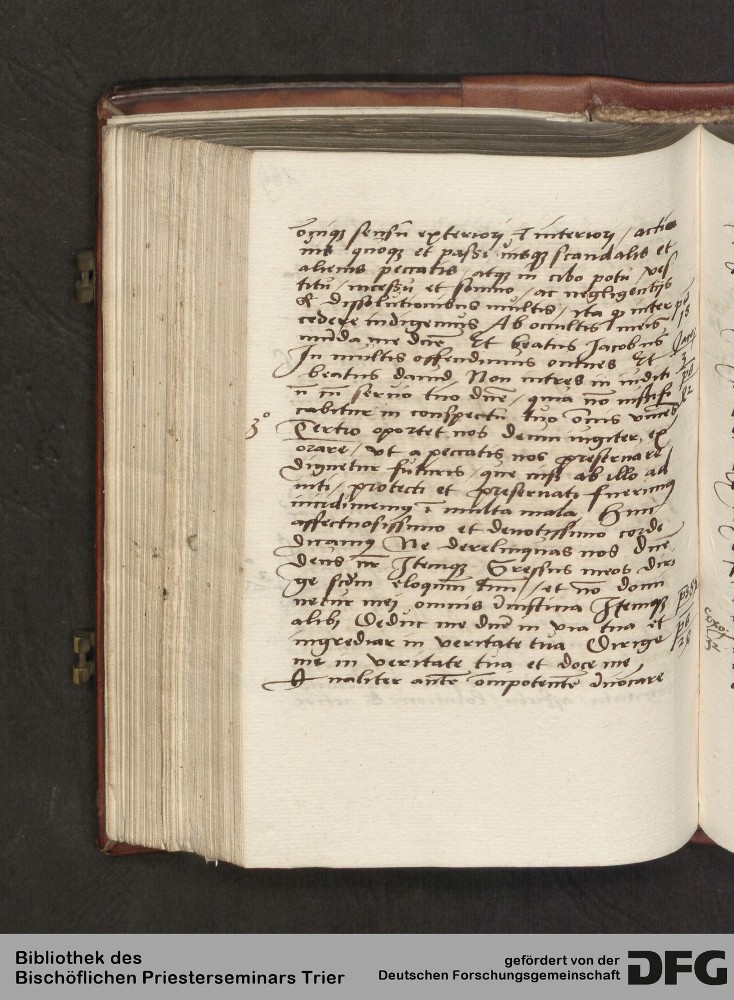 oīūq̄ sensū exteriorū & interiorū / actio
nis quoq̨ et passi nisq̨ scandalis et
alienis peccatis / atq̨ in cibo potu ves
titu / incessu et somno / ac negligentijs
& dissolutionibus multis / ita q̨ inter
cedere indigemus Ab ocultis meis
mūda me dn̄e Et beatus Jacobus
In multis offendimus omnes Et
beatus dauid Non intres in iuditi
ū cū seruo tuo dn̄e / quia nō iustifi
cabitur in conspectu tuo ōnis viuēs
Tertio oportet nos deum iugiter, ex
orare / vt a peccatis nos preseruare
dignetur futuris / que nisi ab illo ad
iuti / protecti et preseruati fuerimus
incidimemus ī multa mala Hinc
affectuosissimo et deuotissimo corde
dicamus Ne derelinquas nos Dn̄e
deus n̄r Itemq̨ Gressus meos diri
ge scd̄m eloquiū tuū / et nō domi
netur mei omnis iniustitia Itemq̨
alibi Deduc me dn̄e in via tua et
ingrediar in veritate tua Dirige
me in veritate tua et doce me
Qualiter autē oīpotentē inuocare
3º
ps
18
Jacob
3
ps
ps
28
Bibliothek des
Bischöflichen Priesterseminars Trier
gefördert von der
Deutschen Forschungsgemeinschaft
DFG